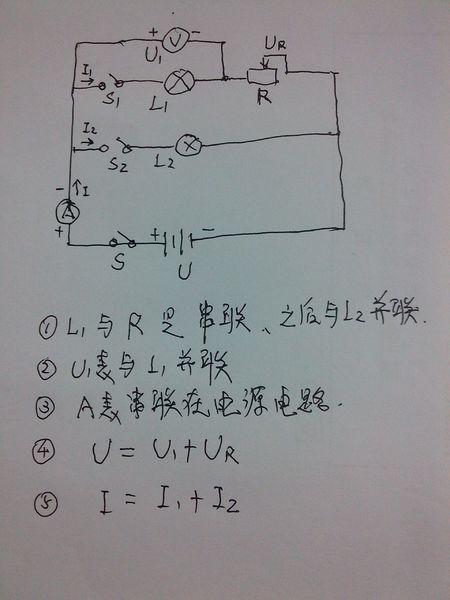 + V -
U₁ UR
I₁ S₁ L₁ R
I₂ S₂ L₂
- I
A
+
S + U -
① L₁与R是串联、之后与L2并联.
② U₁表与L₁并联
③ A表串联在电源电路.
④ U = U₁+UR
⑤ I = I₁+I₂